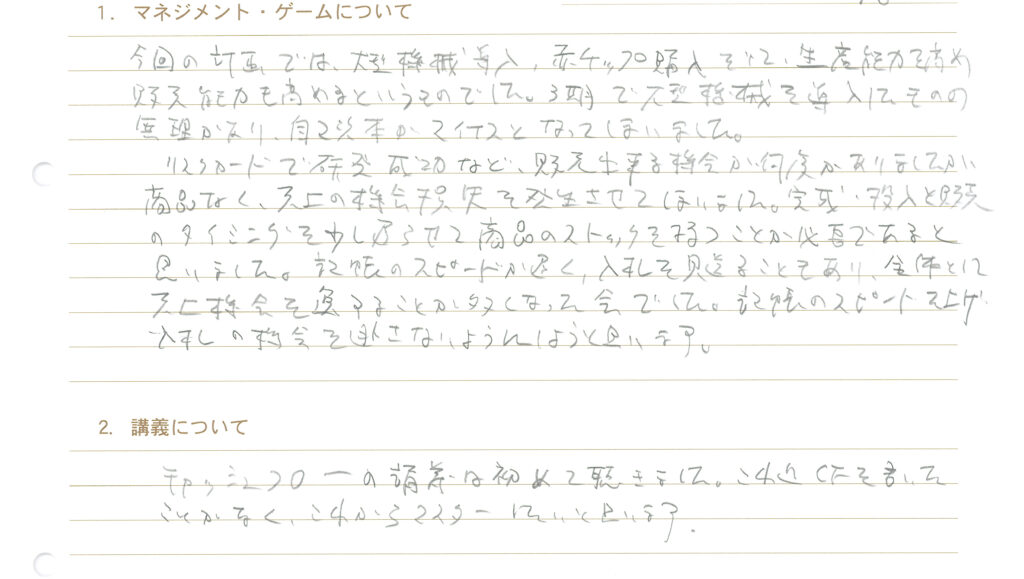 1. マネジメント・ゲームについて
今回の計画では、大型機械導入、赤チップ購入をして、生産能力を高め
販売能力も高めるというものでした。3期で大型機械を導入したものの
無理があり、自己資本がマイナスとなってしまいました。
リスクカードで研究成功など、販売出来る機会が何度かありましたが
商品なく、売上の機会損失を発生させてしまいました。完成・投入と販売
のタイミングを少し遅らせて商品のストックをもつことが必要であると
思いました。記帳のスピードが遅く、入札を見送ることもあり、全体として
売上機会を逸することが多くなった会でした。記帳のスピードを上げ
入札の機会を逃さないようにしようと思います。
2. 講義について
キャッシュフローの講義は初めて聴きました。これ迄CFを書いた
ことがなく、これからマスターしたいと思います。